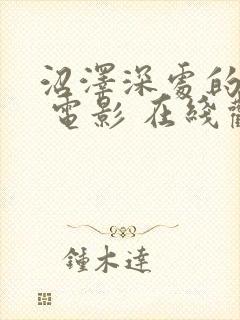 沼澤深處的
電影 在綫觀
鍾木達